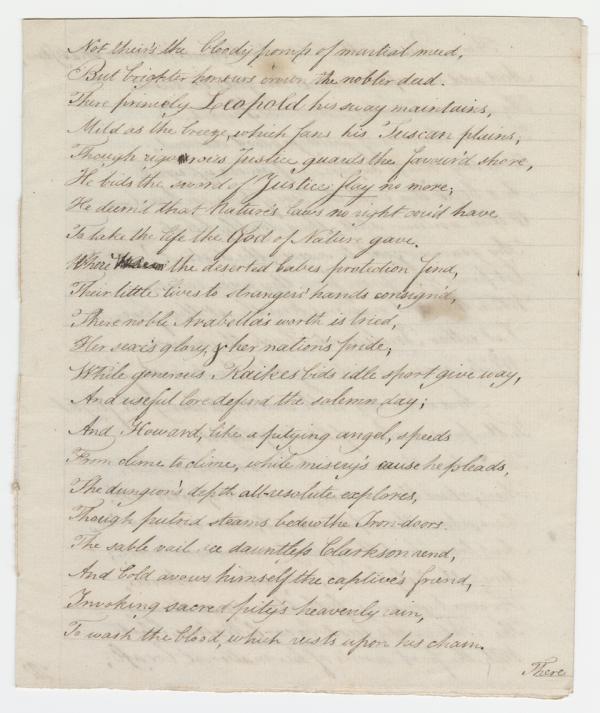 Not their's the bloody pomp of martial meed,
But brighter honours crown the nobler deed.
There princely Leopold his sway maintains,
Mild as the breeze, which fans his Tuscan plains;
Though rigorous Justice guards the favour'd shore,
He bids the sword of Justice slay no more;
He deem'd that Nature's laws no right cou'd have
To take the life the God of Nature gave.
Where the deserted babes protection find,
Their little lives to strangers' hands consign'd,
There noble Arabella's worth is tried,
Her sexe's glory, & her nation's pride;
While generous Raikes bids idle sport give way,
And useful lore defend the solemn day;
And Howard, like a pitying angel, speeds
From clime to clime, while misery's cause he pleads,
The dungeon's depth all-resolute explores,
Though putrid steams bedew the Iron doors.
The sable vail see dauntless Clarkson rend,
And bold avows himself the captive's friend,
Invoking sacred pity's heavenly rain,
To wash the blood, which rests upon his chain.
There